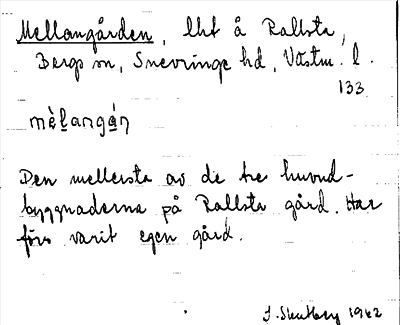 Mellangården, lht å Rallsta,
Bergs sn, Snevringe hd, Västm. l.
133
mè̱langá̱ṇ
Den mellersta av de tre huvud-
byggnaderna på Rallsta gård. Har
förr varit egen gård.
1942